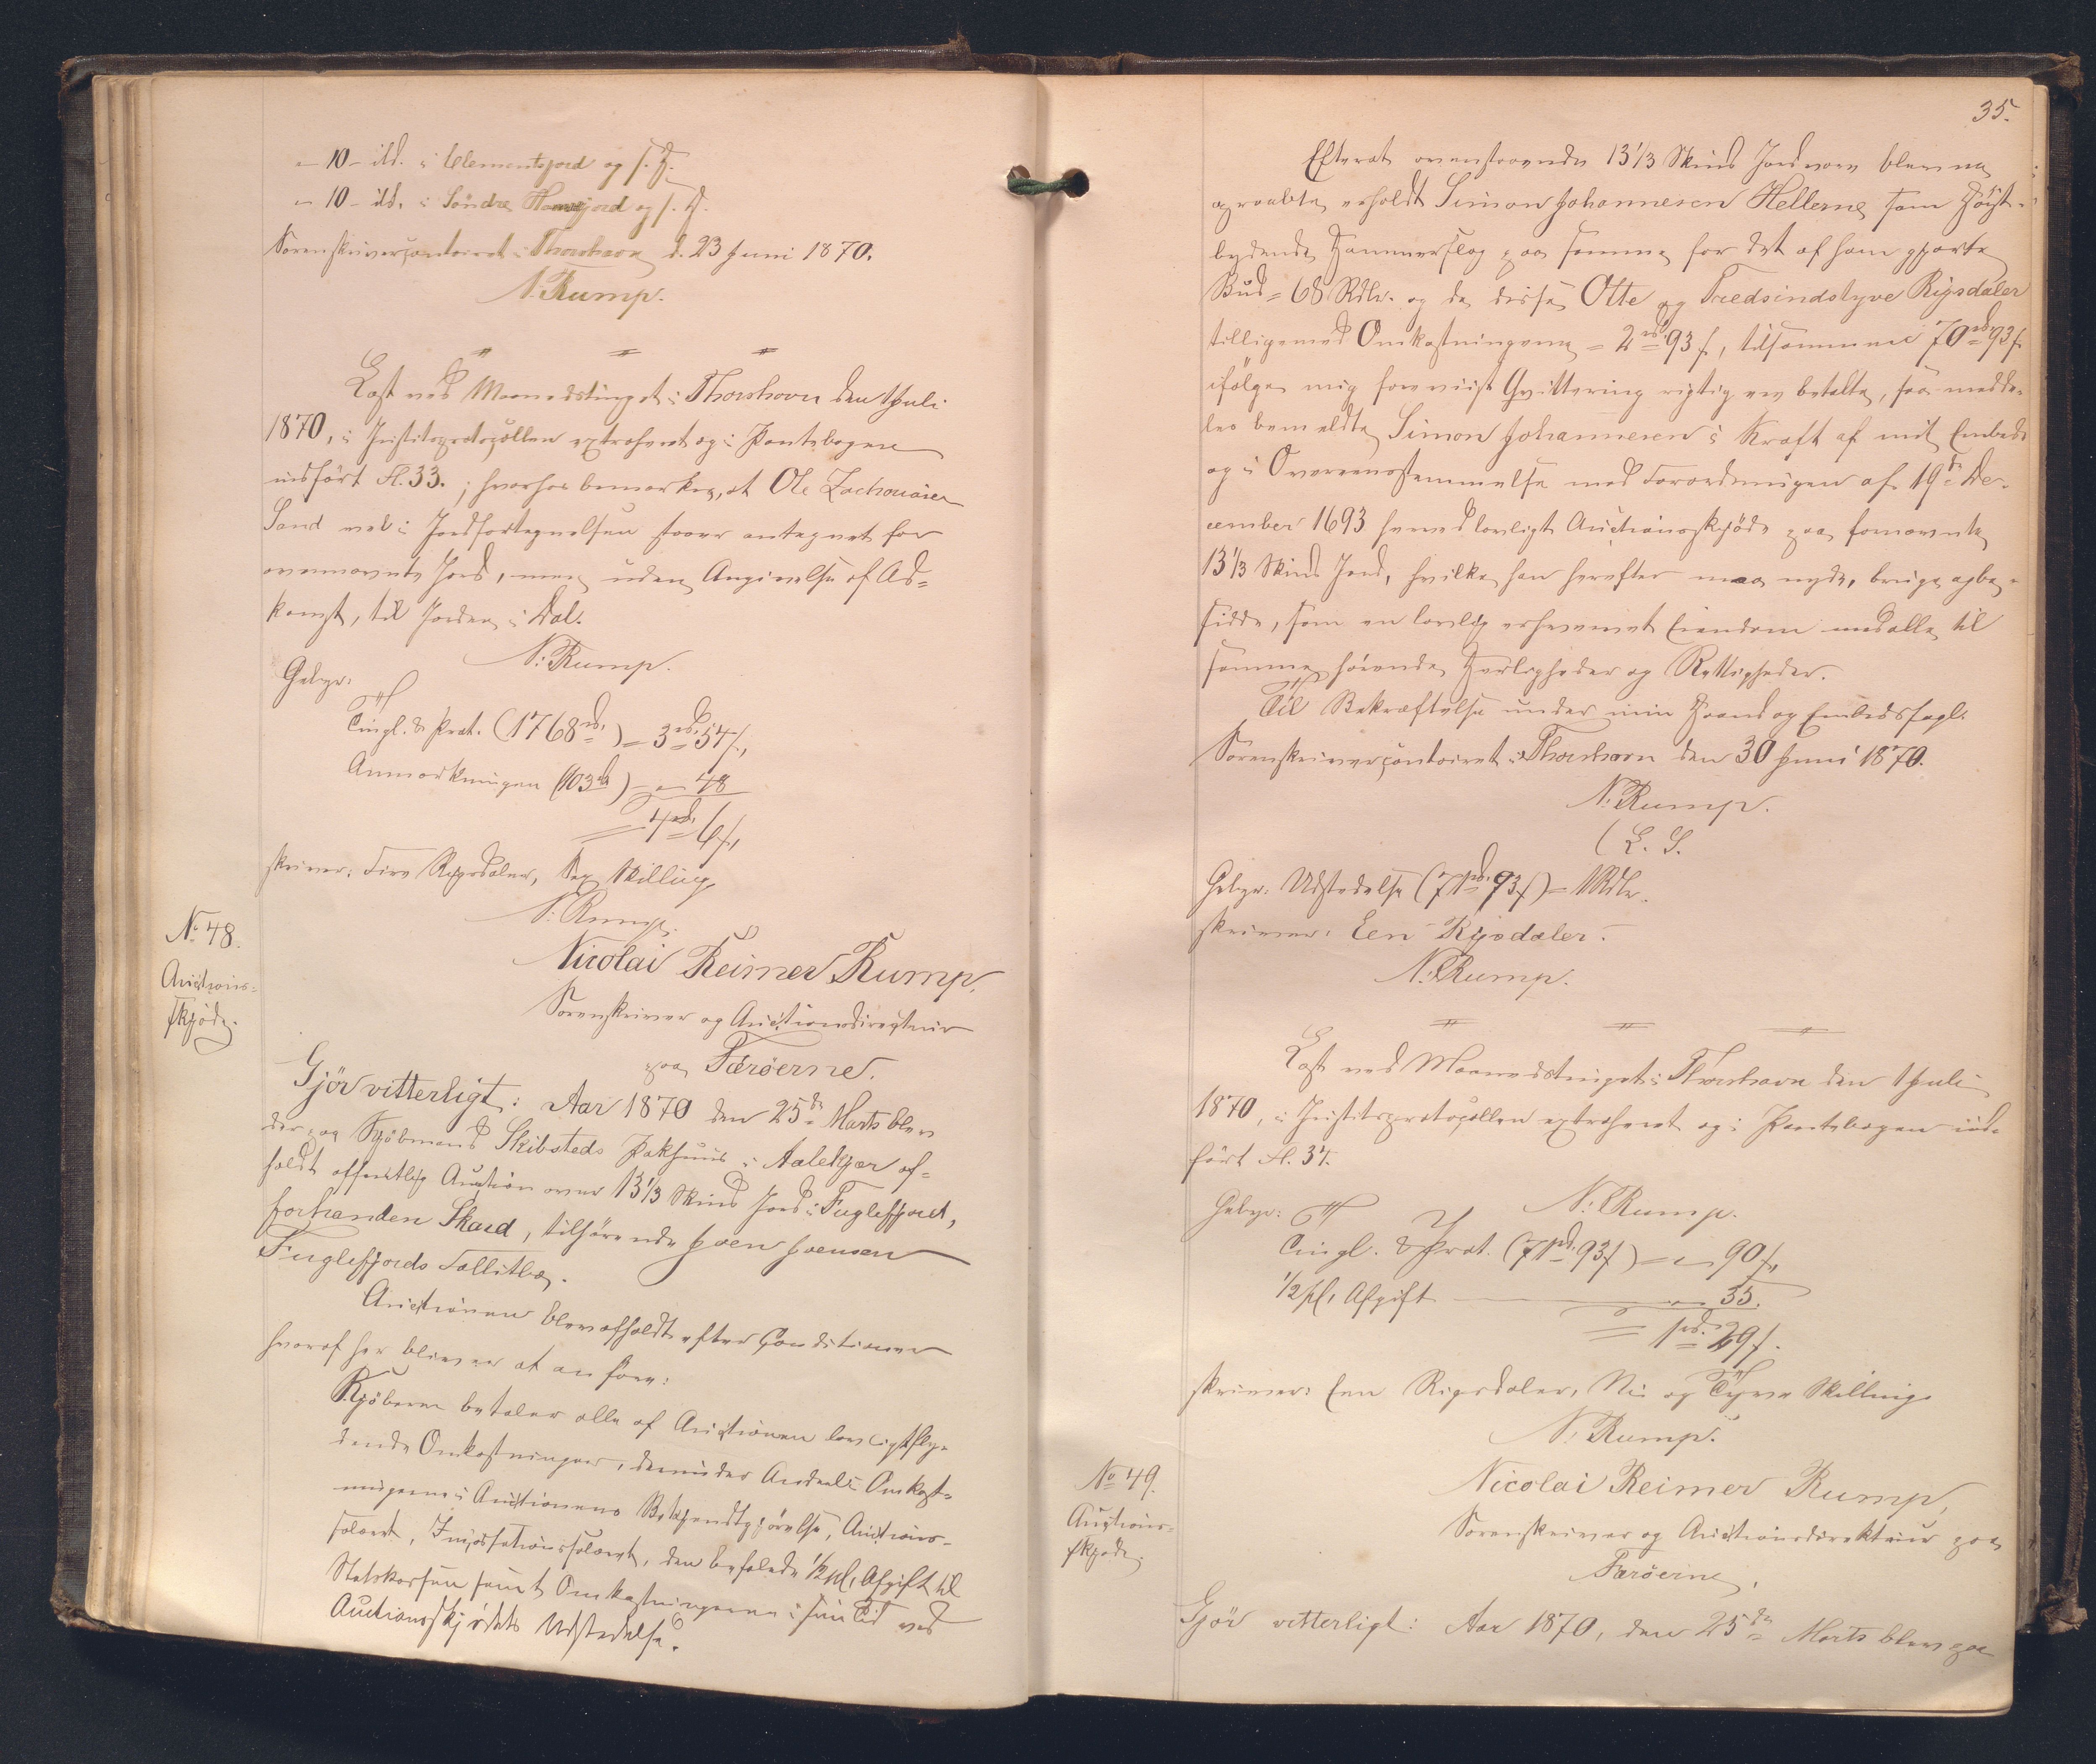 - 10 - ild. i Clementsjord og s. F.
- 10 - ild. i Søndre Homrejord og s. St.
Sorenskrivercontoiret i Thorshavn d. 23 Juni 1870.
N. Rump.
Læst ved Maanedstinget i Thorshavn den 1 Juli
1870, i Justitsprotocollen extraheret og i Pantebogen
indført fl. 33.; hvorhos bemærkes, at Ole Zachariasen
Sand vel i Jordfortegnelsen staaer antegnet for
ovennævnte Jord, men uden Angivelse af Ad=
komst, til Jorden i Dal.
N: Rump.
Gebyr:
Tingl. & Prot. (1768 rd.) = 3 rd. 54 s.,
Anmærkningen (103 rd) - „ - 48
= 4 rd. 6 s.,
skriver: Fire Rigsdaler, Sex Skilling,
N: Rump.
No 48.
Auctions=
skjøde.
Nicolai Reimer Rump.
Sorenskriver og Auctionsdirecteur
paa Færøerne.
Gjör vitterligt: Aar 1870 den 25de Marts blev
der paa Kjøbmand Skibsteds Pakhuus i Aalekjær af=
holdt offentlig Auction over 13 1/3 Skind Jord i Fuglefjord,
forhanden Skard, tilhørende Joen Joensen
Fuglefjords Fallitbo.
Auctionen blev afholdt efter Conditioner
hvoraf her bliver at anføre:
Kjøberen betaler alle af Auctionen lovligt fly=
dende Omkostninger, derunder Andeel i Omkost=
ningerne i Auctionens Bekjendtgjørelse, Auctions=
salaret, Incassationssalaret, den befalede 1/2 pCt. Afgift til
Statskassen samt Omkostningerne i sin Tid ved
Auctionsskjødets Udstedelse.
35.
Efterat ovenstaaende 13 1/3 Skind Jord vare blevne
opraabte, erholdt Simon Johannesen Hellerne som Høist=
bydende Hammerslag paa samme for det af ham gjorte
Bud = 68 Rdlr. og da disse Otte og Tredsindstyve Rigsdaler
tilligemed Omkostningerne = 2 rd. 93 s., tilsammen 70 rd. 93 s.
ifølge mig foreviist Qvittering rigtig ere betalte, saa medde=
les bemeldte Simon Johannesen i Kraft af mit Embede
og i Overeensstemmelse med Forordningen af 19de De=
cember 1693 herved lovligt Auctionsskjøde paa fornævnte
13 1/3 Skind Jord, hvilke han herefter maa nyde, bruge og be=
sidde, som en lovlig erhvervet Eiendom med alle til
samme hørende Herligheder og Rettigheder.
Til Bekræftelse under min Haand og Embedssegl.
Sorenskrivercontoiret i Thorshavn den 30 Juni 1870.
N: Rump.
(L. S.
Gebyr: Udstedelse (71 rd. 93 s) = 1 Rdlr.
skriver: Een Rigsdaler.
N. Rump.
Læst ved Maanedstinget i Thorshavn den 1 Juli
1870, i Justitsprotocollen extraheret og i Pantebogen ind=
ført fl. 34.
N: Rump.
Gebyr:
Tingl. & Prot. (71 rd. 93 s) = „ - 90 s.,
1/2 pCt. Afgift - „ - 35.
= 1 rd. 29 s.
skriver: Een Rigsdaler, Ni og Tyve Skilling.
N: Rump.
No 49.
Auctions=
skjøde.
Nicolai Reimer Rump,
Sorenskriver og Auctionsdirekteur paa
Færøerne,
Gjör vitterligt: Aar 1870, den 25de Marts blev paa